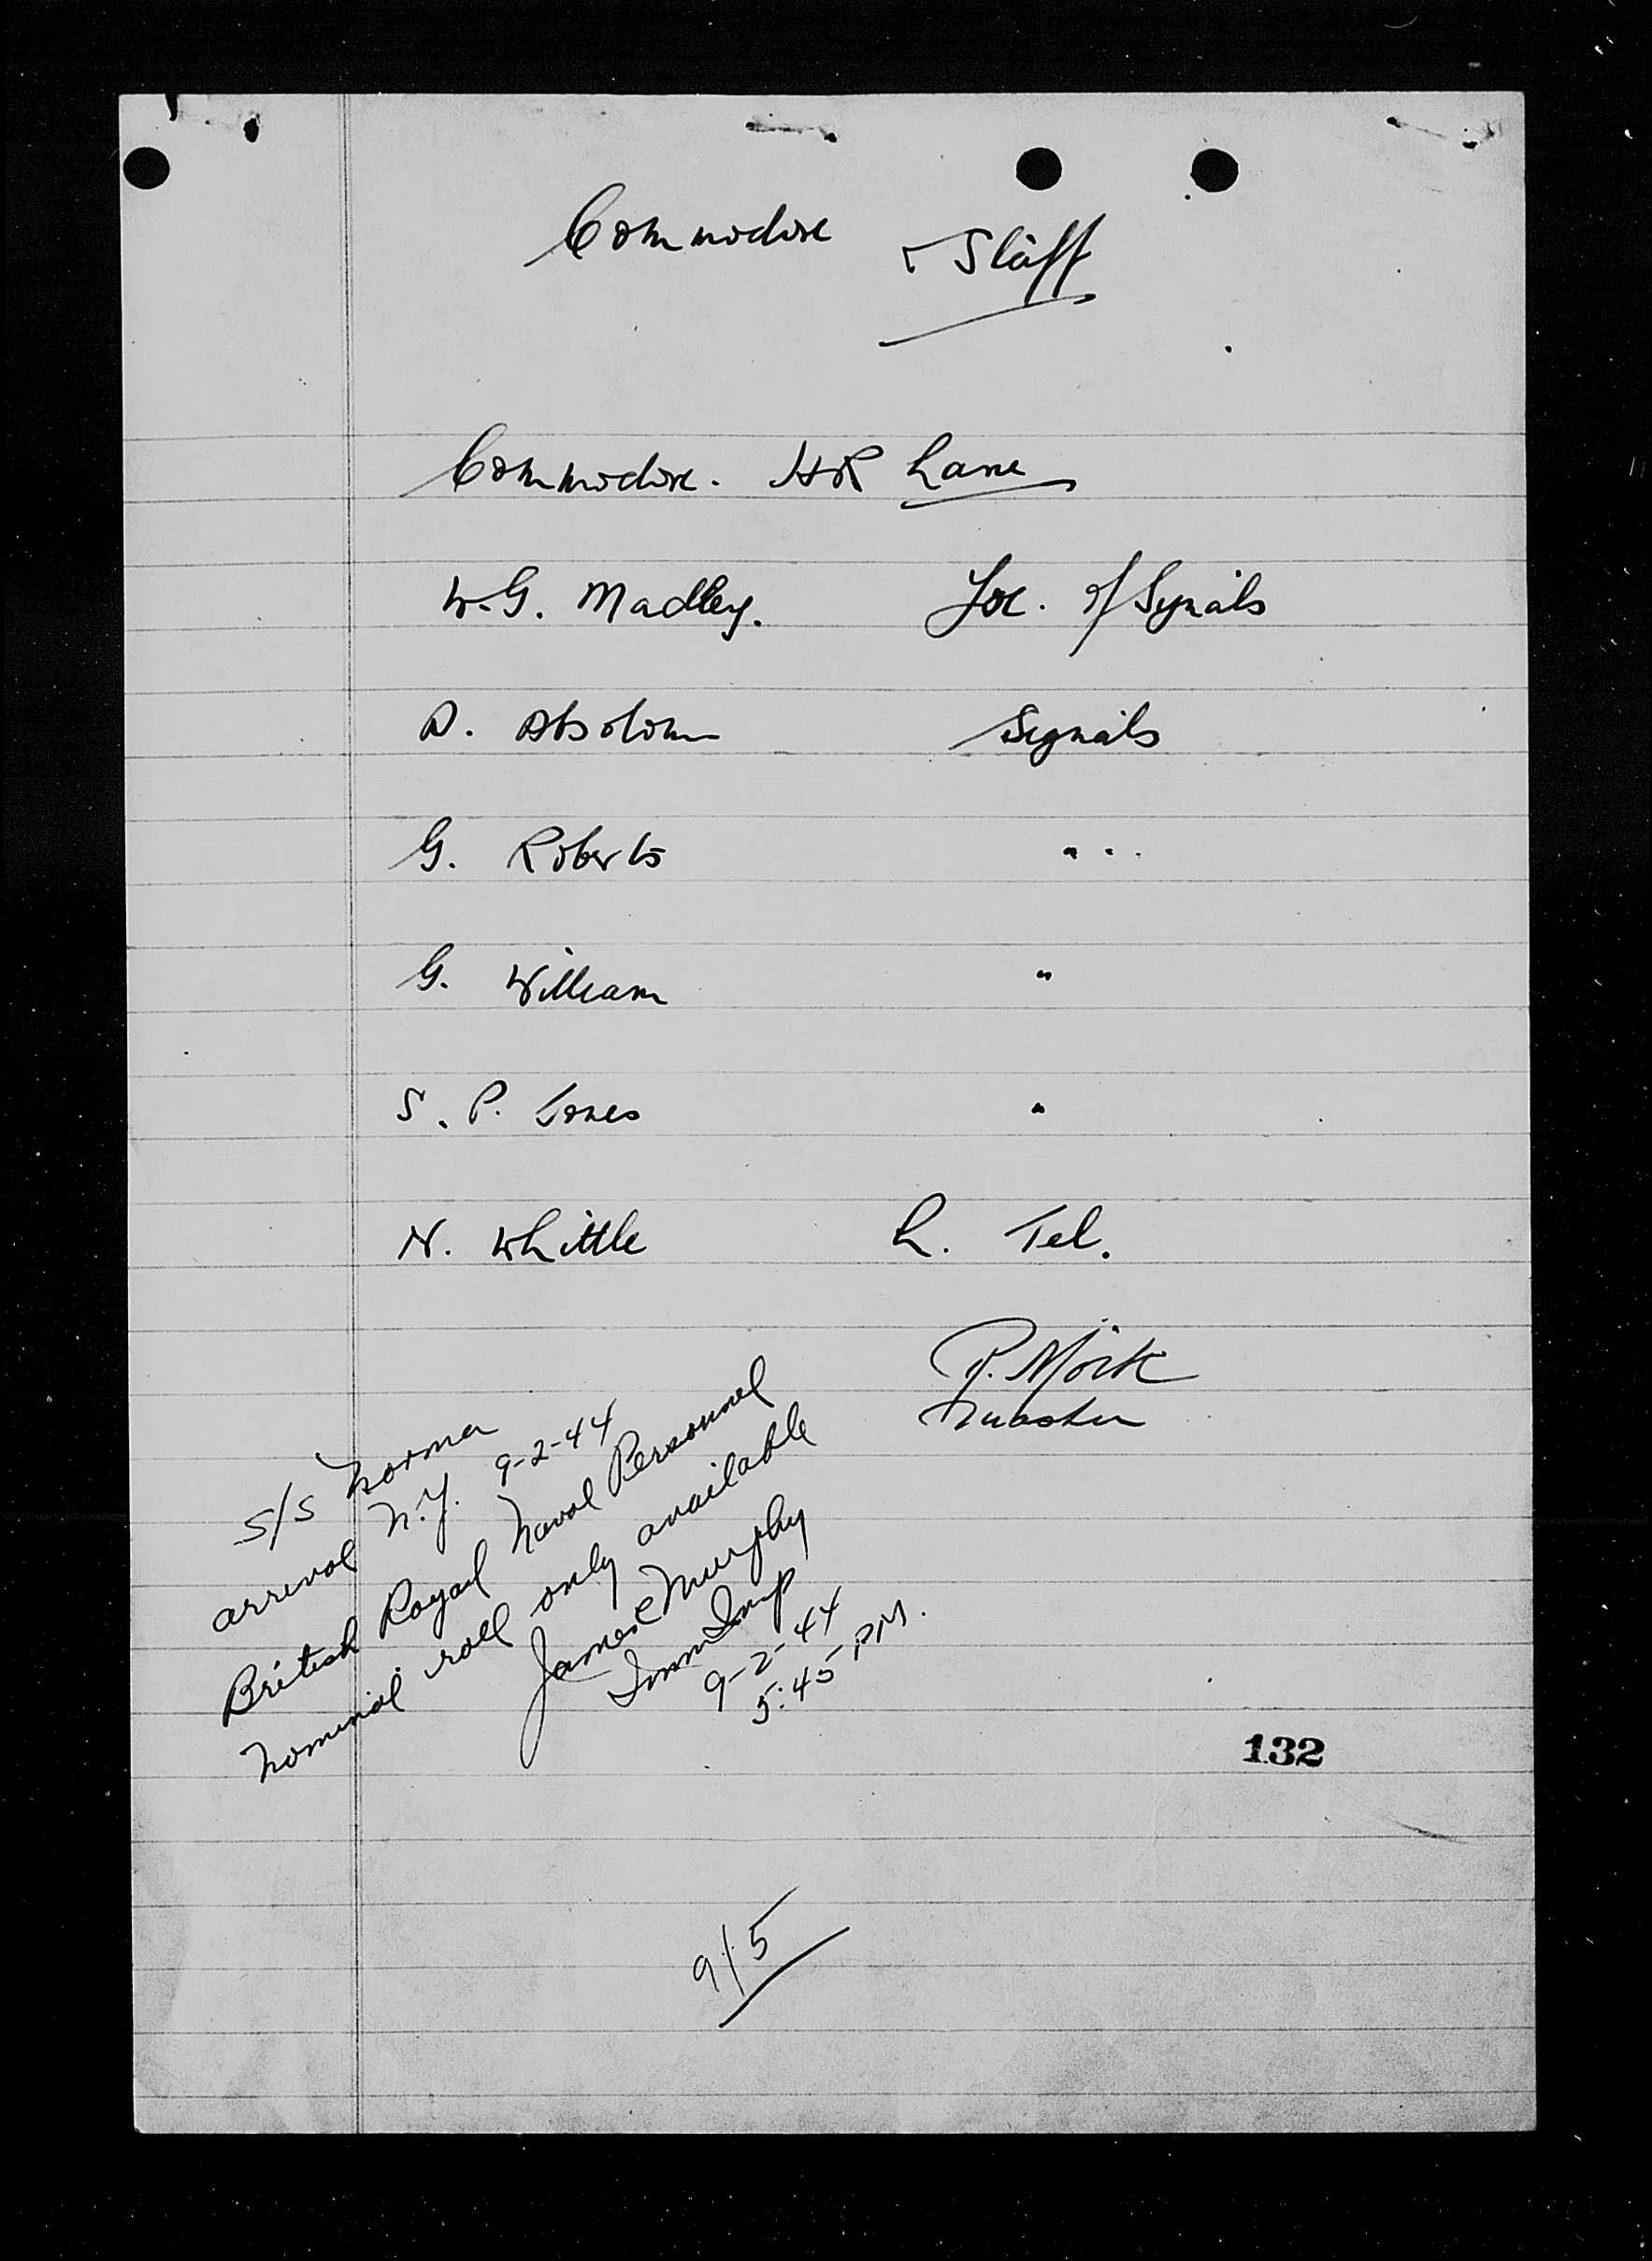 Commodore & Staff
Commodore. HR Lane
W.G. Madley. Yoe. of Signals
D. Absolom Signals
G. Roberts " "
G. William "
S. P. Jones "
N. Whittle L. Tel.
P. Mörk
master
S/S Norma
arrival N.Y. 9-2-44
British Royal Naval Personnel
nominal roll only available
James E Murphy
Imm Insp
9-2-44
5:45 PM.
132
9/5